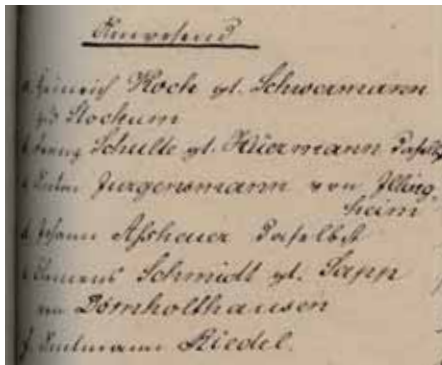 Anwesend
a. Heinrich Koch gt. Schwermann
zu Stockum
b. Franz Schulte gt. Hüermann daselbst
c. Anton Jurgensmann von Illing-
heim
d. Johann Assheuer daselbst
e. Clemens Schmidt gt. Sapp
von Dörnholthausen
f. Amtmann Riedel.